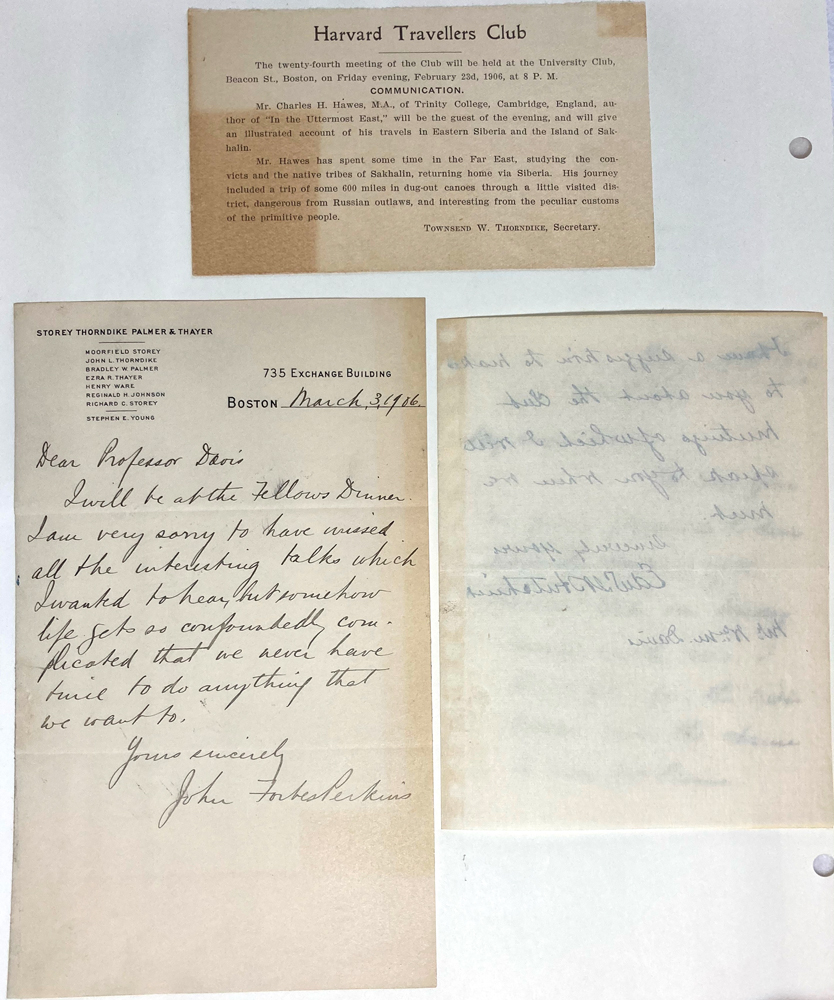 Harvard Travellers Club
The twenty-fourth meeting of the Club will be held at the University Club,
Beacon St., Boston, on Friday evening, February 23d, 1906, at 8 P. M.
COMMUNICATION.
Mr. Charles H. Hawes, M.A., of Trinity College, Cambridge, England, au-
thor of "In the Uttermost East," will be the guest of the evening, and will give
an illustrated account of his travels in Eastern Siberia and the Island of Sak-
halin.
Mr. Hawes has spent some time in the Far East, studying the con-
victs and the native tribes of Sakhalin, returning home via Siberia. His journey
included a trip of some 600 miles in dug-out canoes through a little visited dis-
trict, dangerous from Russian outlaws, and interesting from the peculiar customs
of the primitive people.
TOWNSEND W. THORNDIKE, Secretary.
STOREY THORNDIKE PALMER & THAYER
MOORFIELD STOREY
JOHN L. THORNDIKE
BRADLEY W. PALMER
EZRA R. THAYER
HENRY WARE
REGINALD H. JOHNSON
RICHARD C. STOREY
STEPHEN E. YOUNG
735 EXCHANGE BUILDING
BOSTON March, 3, 1906.
Dear Professor Davis
I will be at the Fellows Dinner.
I am very sorry to have missed
all the interesting talks which
I wanted to hear, but somehow
life gets so confoundedly com-
plicated that we never have
time to do anything that
we want to.
Yours sincerely
John Forbes Perkins
I have a suggestion to make
to you about the Club
meetings of which I will
speak to you when we
meet.
Sincerely yours
Edw. Hutchins
Mr. Wm. M. Davis